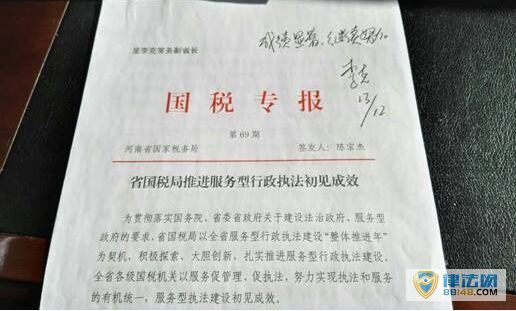 呈李克常务副省长
成绩显著,继续努力。
李克
13/12
国税专报
第 69 期
河南省国家税务局 签发人：陈宗杰
省国税局推进服务型行政执法初见成效
为贯彻落实国务院、省委省政府关于建设法治政府、服务型
政府的要求，省国税局以全省服务型行政执法建设“整体推进年”
为契机，积极探索、大胆创新，扎实推进服务型行政执法建设。
全省各级国税机关以服务促管理、促执法，努力实现执法和服务
的有机统一，服务型执法建设初见成效。
律法网
88148.com